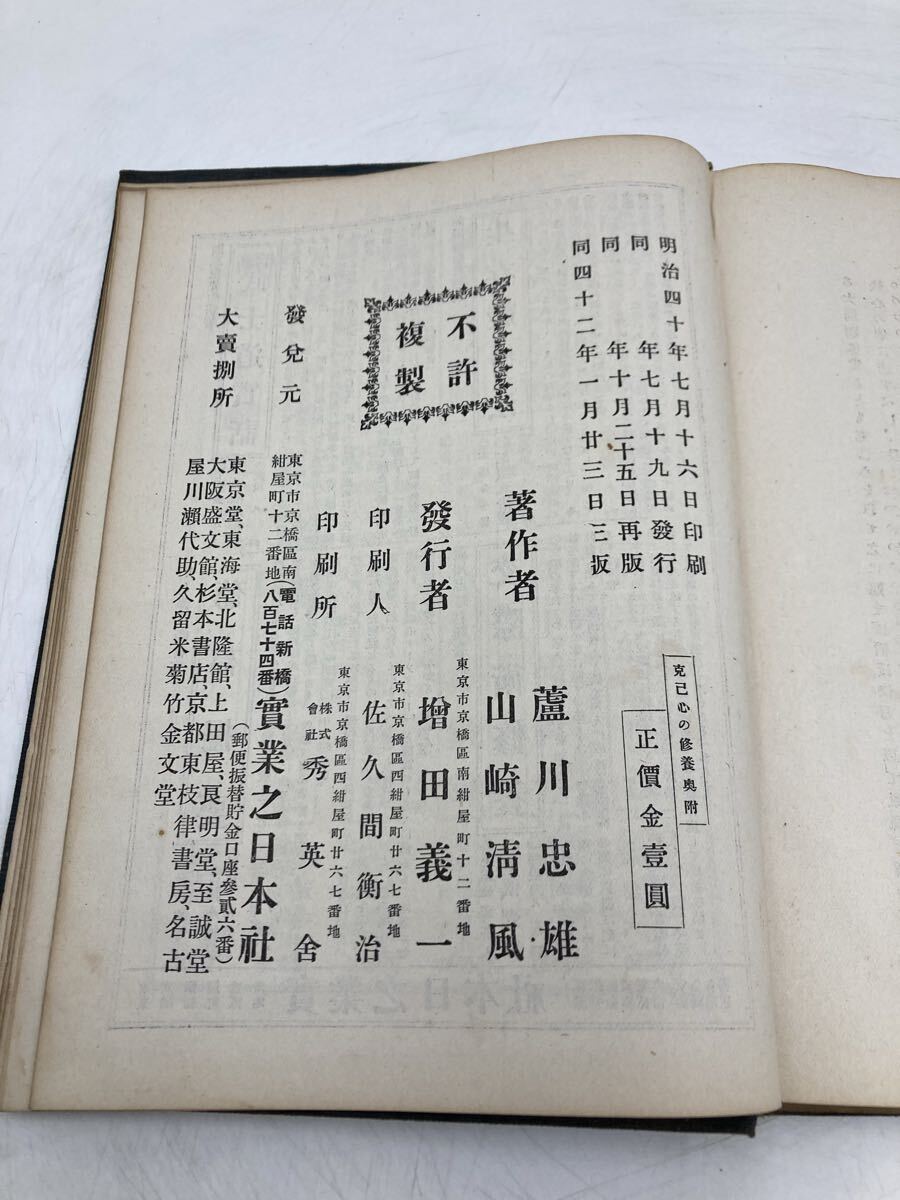 明治四十年七月十六日印刷
同年七月十九日發行
同年十月二十五日再版
同四十二年一月廿三日三版
克己心の修養奥附
正價金壹圓
不許
複製
著作者
蘆川忠雄
山崎清風
發行者
東京市京橋區南紺屋町十二番地
增田義一
印刷人
東京市京橋區四紺屋町廿六七番地
佐久間衡治
印刷所
東京市京橋區四紺屋町廿六七番地
株式會社秀英舍
發兌元
東京市京橋區南
紺屋町十二番地
(電話新橋
八百七十四番)
實業之日本社
(郵便振替貯金口座參貳六番)
大賣捌所
東京堂、東海堂、北隆館、上田屋、良明堂、至誠堂
大阪盛文館、杉本書店、京都東枝律書房、名古
屋川瀬代助、久留米菊竹金文堂